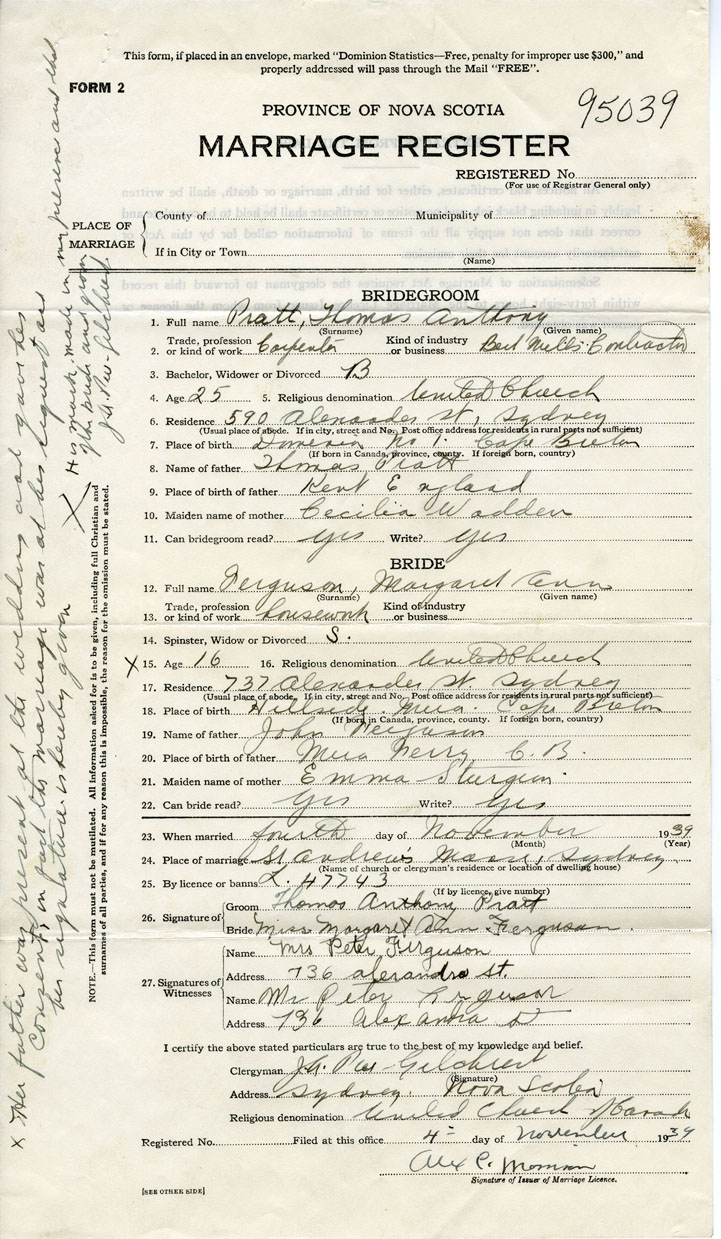 This form, if placed in an envelope, marked "Dominion Statistics—Free, penalty for improper use $300," and
properly addressed will pass through the Mail "FREE".
FORM 2
95039
PROVINCE OF NOVA SCOTIA
MARRIAGE REGISTER
REGISTERED No
(For use of Registrar General only)
PLACE OF MARRIAGE
County of Municipality of
If in City or Town
(Name)
BRIDEGROOM
1. Full name Pratt, Thomas Anthony
(Surname) (Given name)
2. Trade, profession or kind of work Carpenter Kind of industry or business Contractor
3. Bachelor, Widower or Divorced B
4. Age 25 5. Religious denomination United Church
6. Residence 590 Alexander St, Sydney
(Usual place of abode. If in city, street and No. Post office address for residents in rural parts not sufficient)
7. Place of birth Dominion No 1. Cape Breton
(If born in Canada, province, county. If foreign born, country)
8. Name of father Thomas Pratt
9. Place of birth of father Kent England
10. Maiden name of mother Cecilia Wadden
11. Can bridegroom read? Yes Write? Yes
BRIDE
12. Full name Ferguson, Margaret Ann
(Surname) (Given name)
13. Trade, profession or kind of work housework Kind of industry or business
14. Spinster, Widow or Divorced S.
X 15. Age 16 16. Religious denomination United Church
17. Residence 737 Alexander St Sydney
(Usual place of abode. If in city, street and No. Post office address for residents in rural parts not sufficient)
18. Place of birth Hillside Mira Cape Breton
(If born in Canada, province, county. If foreign born, country)
19. Name of father John Ferguson
20. Place of birth of father Mira Ferry C.B.
21. Maiden name of mother Emma
22. Can bride read? Yes Write? Yes
23. When married fourth day of November 1939
(Month) (Year)
24. Place of marriage St Andrew's Manse, Sydney
(Name of church or clergyman's residence or location of dwelling house)
25. By licence or banns L. 47743
(If by licence, give number)
26. Signature of
Groom Thomas Anthony Pratt
Bride Miss Margaret Ann Ferguson
27. Signatures of Witnesses
Name Mrs Peter Ferguson
Address 736 alexandra st.
Name Mr Peter Ferguson
Address 736 Alexandra St
I certify the above stated particulars are true to the best of my knowledge and belief.
Clergyman Gilchrist
(Signature)
Address Sydney. Nova Scotia
Religious denomination United Church of Canada
Registered No. Filed at this office 4 day of November 1939
Alex P.
Signature of Issuer of Marriage Licence.
[SEE OTHER SIDE]
NOTE.—This form must not be mutilated. All information asked for is to be given, including full Christian and
surnames of all parties, and if for any reason this is impossible, the reason for the omission must be stated.
x Her father was present at the wedding and gave his
consent, in fact the marriage was at his request and
his signature is hereby given
X His mark, made in my presence and that
of the bride and groom
Gilchrist